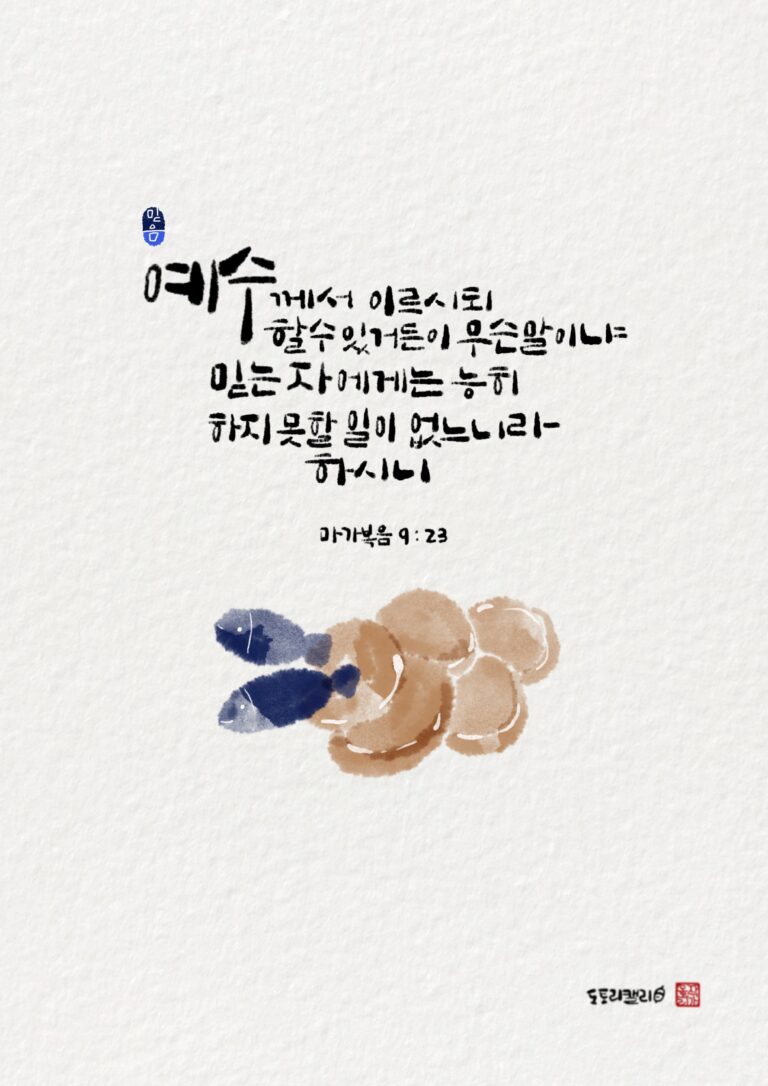 믿음
예수께서 이르시되
할수있거든이 무슨말이냐
믿는자에게는 능히
하지못할 일이 없느니라
하시니
마가복음 9:23
도토리캘리